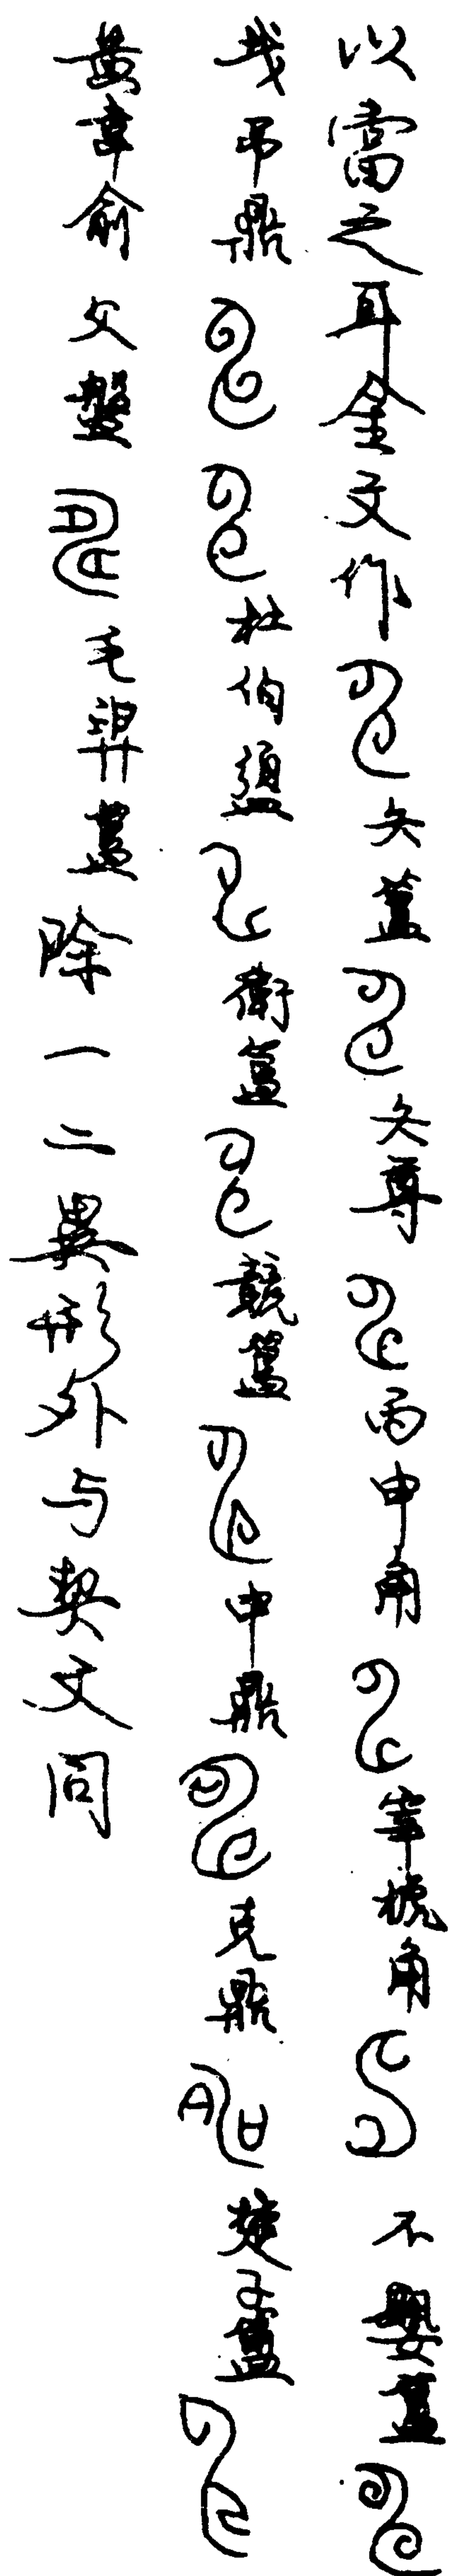 以當之耳金文作夨簋夨尊丙申角宰椃角不𡢁簋
弔鼎杜伯盨衛簋競簋中鼎克鼎楚子簠
黃韋俞父盤毛𢍰簋除一二異形外与契文同